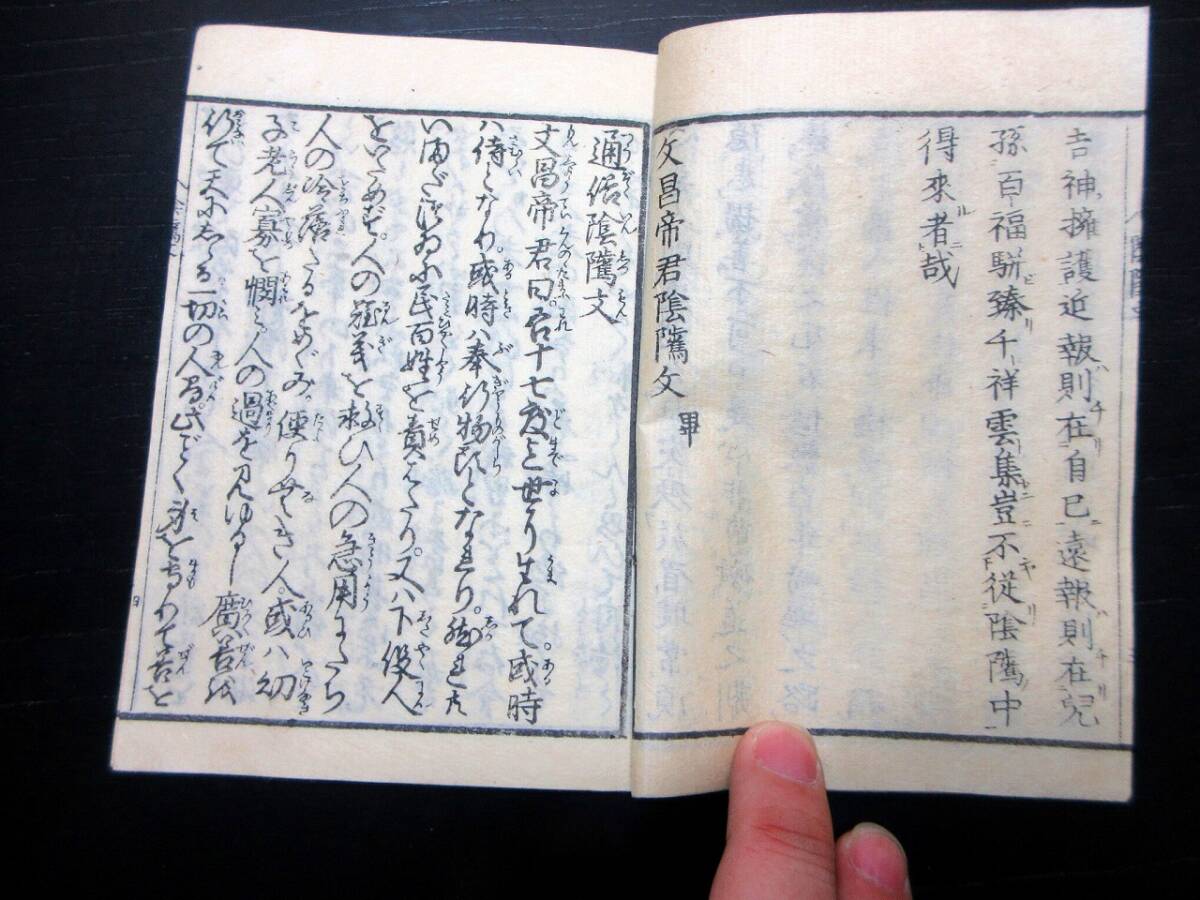 吉神擁護近報則在自己遠報則在兒
孫百福駢臻千祥雲集豈不從陰隲中
得來者哉
文昌帝君陰隲文 畢
通俗陰隲文
文昌帝君曰吾十七度迄世に生れて。或時
ハ侍となり。或時ハ奉行物頭となれり。然れ共
いまだ 民百姓を責はたり。又ハ下役人
をいためず。人の難義を救ひ人の急用にたち
人の冷落たるをめぐみ。便りなき人。或ハ幼
子老人寡を憫ミ人の過を見ゆるし廣善を
行て天にある一切の人 此ごとく身を守りて善を